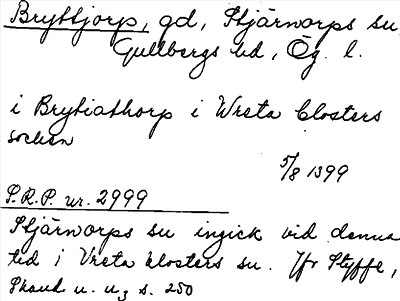 Bryttjorp, gd, Stjärnorps su
Gullbergs hd, Ög. l.
i Brytiathorp i Wreta Closters
socken
5/8 1399
S.R.P. nr. 2999
Stjärnorps su ingick vid denna
tid i Vreta klosters su. Jfr Styffe,
Skand u. u., s. 250